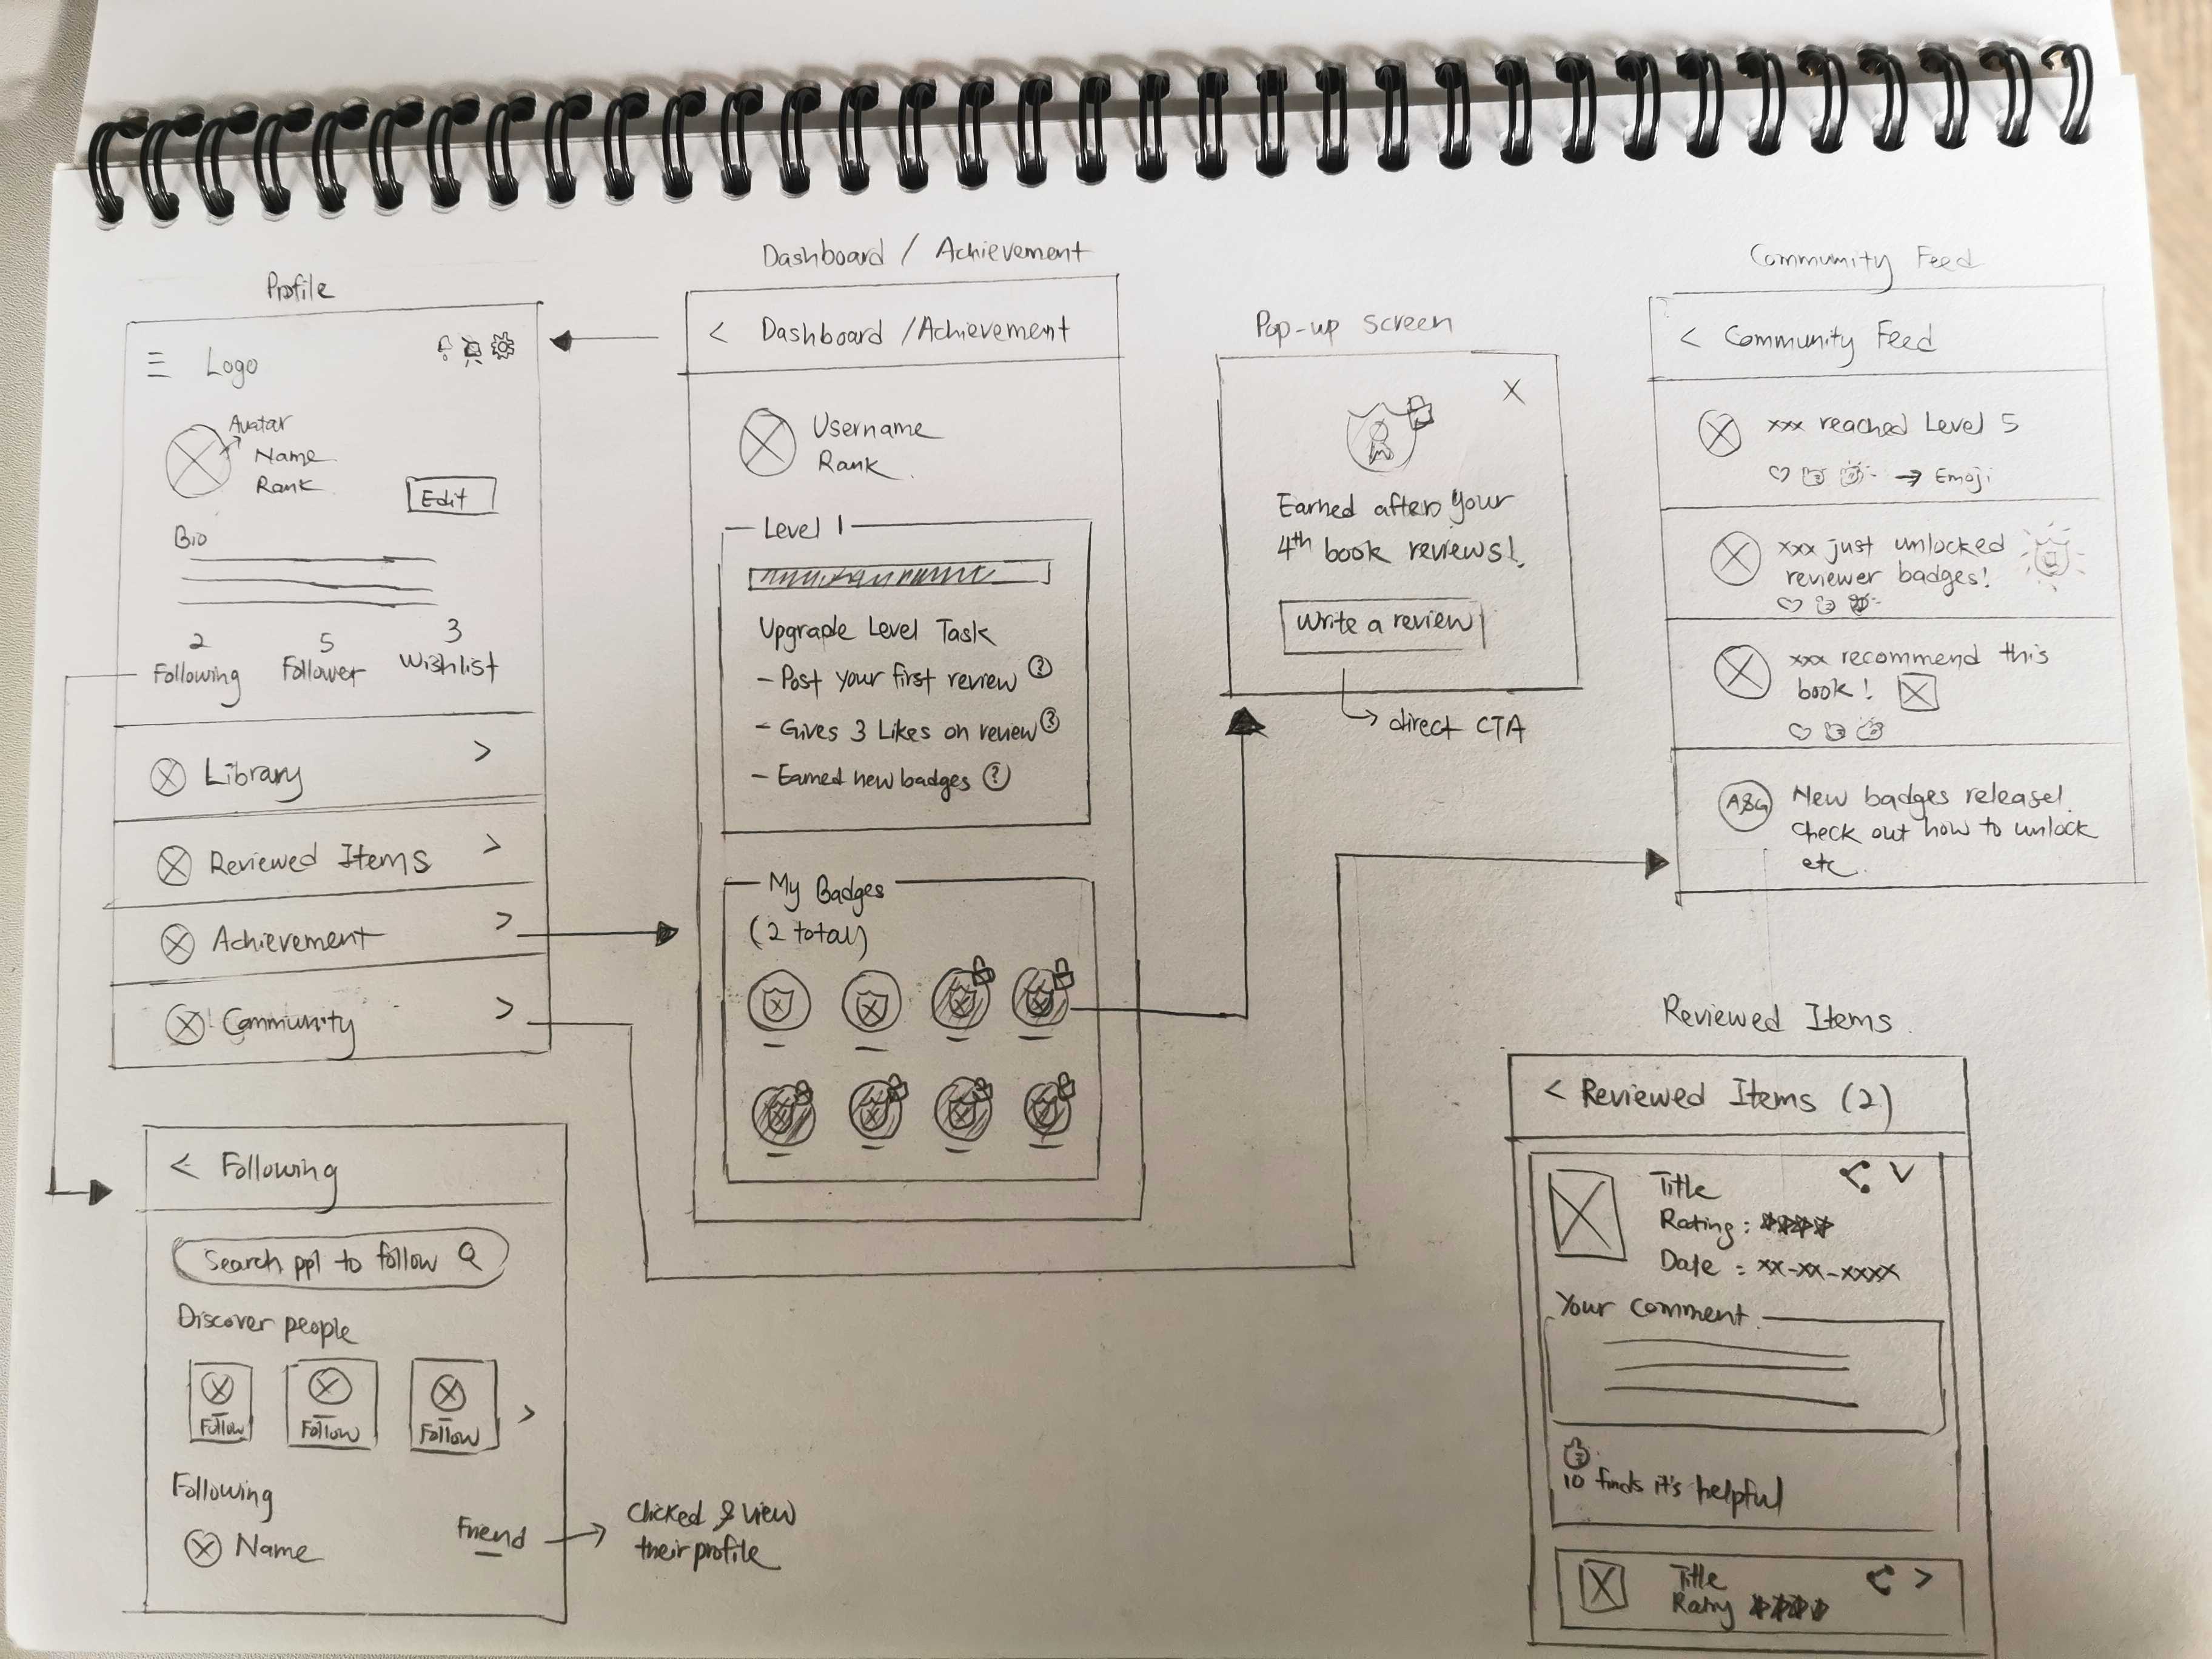 Profile
Logo
Avatar
Name
Rank
Edit
Bio
2
Following
5
Follower
3
Wishlist
Library
Reviewed Items
Achievement
Community
< Following
Search ppl to follow
Discover people
Follow
Follow
Follow
>
Following
Name
Friend
Clicked & view
their profile
Dashboard / Achievement
< Dashboard / Achievement
Username
Rank
Level 1
Upgrade Level Task
- Post your first review ?
- Gives 3 Likes on review ?
- Earned new badges ?
My Badges
(2 total)
Pop-up Screen
X
Earned after your
4th book reviews!
Write a review
direct CTA
Community Feed
< Community Feed
xxx reached Level 5
→ Emoji
xxx just unlocked
reviewer badges!
xxx recommend this
book!
A&G
New badges release!
Check out how to unlock
etc.
Reviewed Items
< Reviewed Items (2)
Title
Rating :
Date : xx-xx-xxxx
Your comment
10 finds it's helpful
Title
Rating